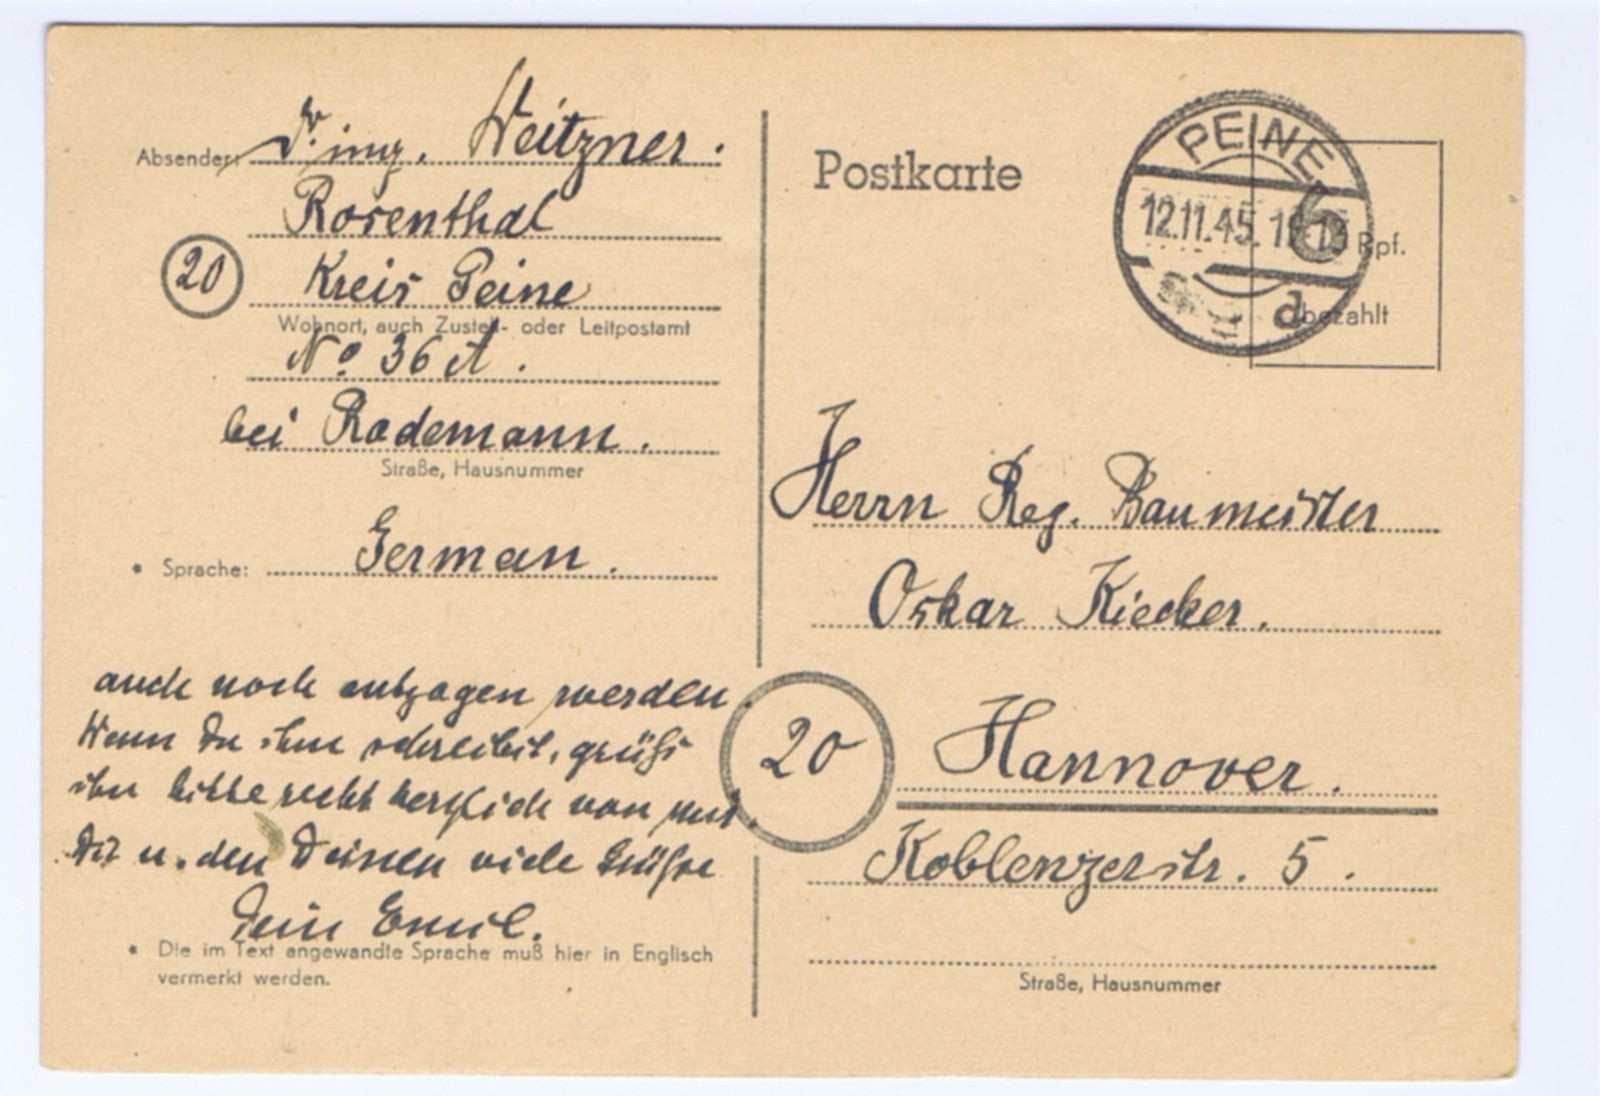 Absender: Dr. ing. Weitzner.
Rosenthal
20
Kreis Peine
Wohnort, auch Zustell- oder Leitpostamt
No 36 A.
bei Rademann.
Straße, Hausnummer
* Sprache: German.
auch noch entzogen werden.
Wenn Du ihm schreibst, grüße
ihn bitte recht herzlich von mir.
Dir u. den Deinen viele Grüße
Dein Emil.
* Die im Text angewandte Sprache muß hier in Englisch
vermerkt werden.
Postkarte
PEINE
12.11.45.
a
6 Rpf.
bezahlt
Herrn Reg. Baumeister
Oskar Kiecker.
20
Hannover.
Koblenzerstr. 5.
Straße, Hausnummer